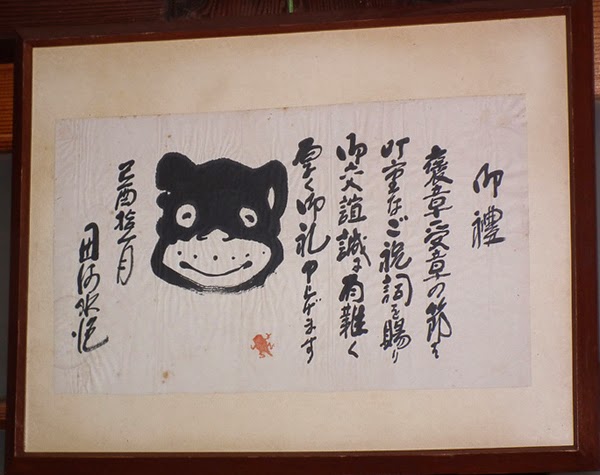 御禮
褒章受章の節は
叮重なご祝詞を賜り
御交誼誠に有難く
厚く御礼申上げます
己酉拾一月
田河水泡